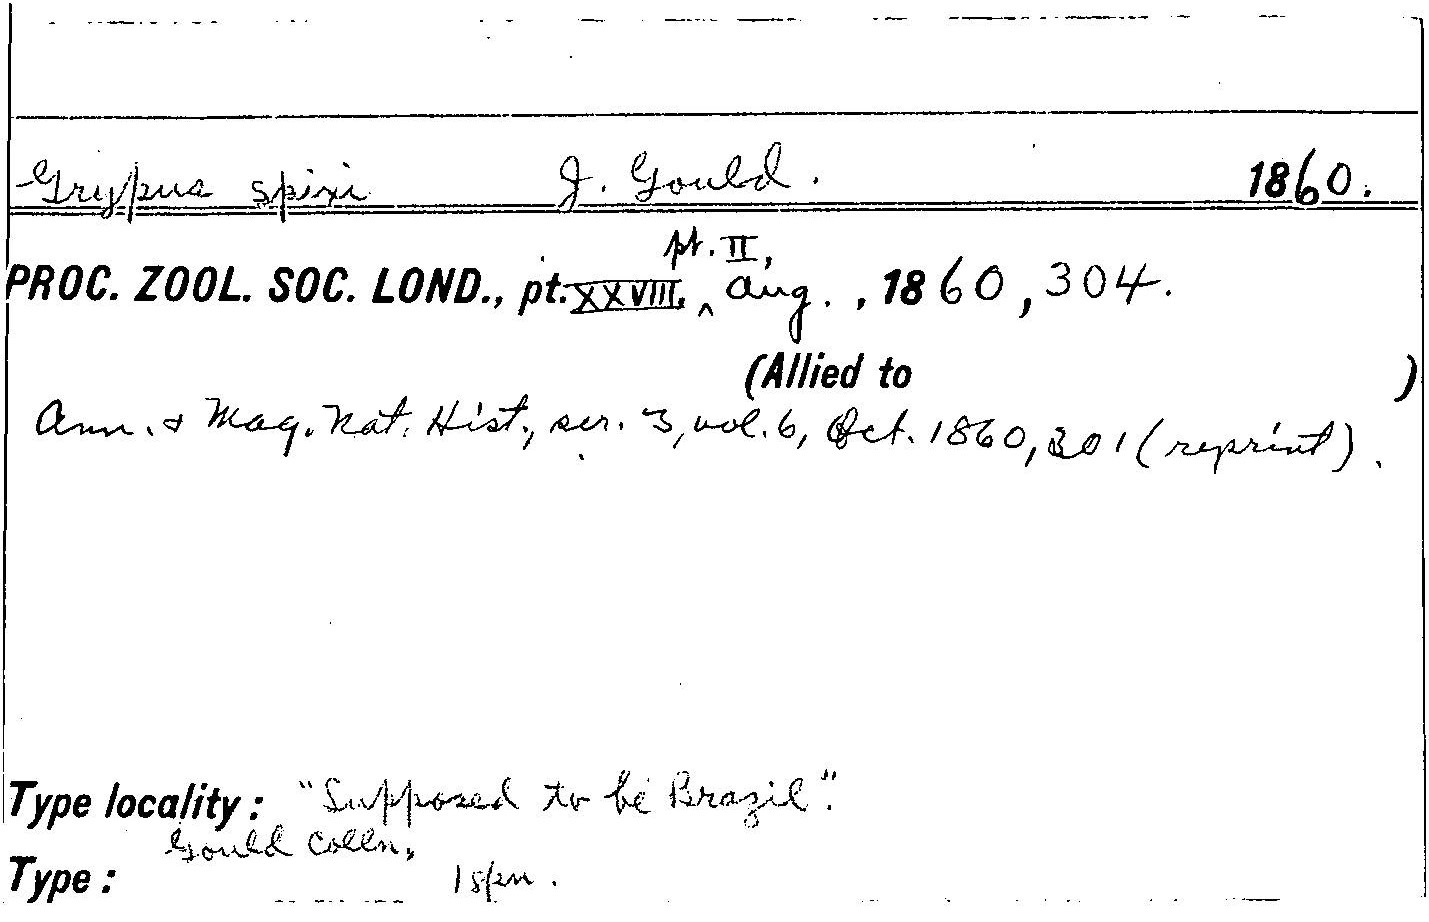 Grypus spixi J. Gould. 1860.
pt. II,
PROC. ZOOL. SOC. LOND., pt. XXVIII, ^ Aug. , 1860, 304.
(Allied to )
Ann. & Mag. Nat. Hist., ser. 3, vol. 6, Oct. 1860, 301 (reprint).
Type locality: "Supposed to be Brazil".
Gould Colln,
Type: 1 spn.